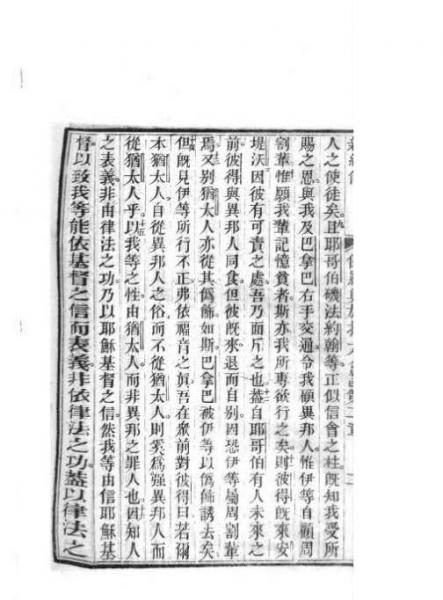 人之使徒矣且耶哥伯磯法約翰等正似信會之柱既知我受所
賜之恩與我及巴拿巴右手交通令我顧異邦人惟伊等自顧周
割輩惟願我輩記憶貧者斯亦我所專欲行之矣則彼得既來安
堤沃因彼有可責之處吾乃面斥之也蓋自耶哥伯有人未來之
前彼得與異邦人同食但彼既來退而自別因恐伊等屬周割輩
焉又別猶太人亦從其僞飾如斯巴拿巴被伊等以僞飾誘去矣
但既見伊等所行不正弗依福音之眞吾在衆前對彼得曰若爾
本猶太人自從異邦人之俗而不從猶太人則奚爲强異邦人而
從猶太人乎以我等之性由猶太人而非異邦之罪人也因知人
之表義非由律法之功乃以耶穌基督之信然我等由信耶穌基
督以致我等能依基督之信而表義非依律法之功蓋以律法之